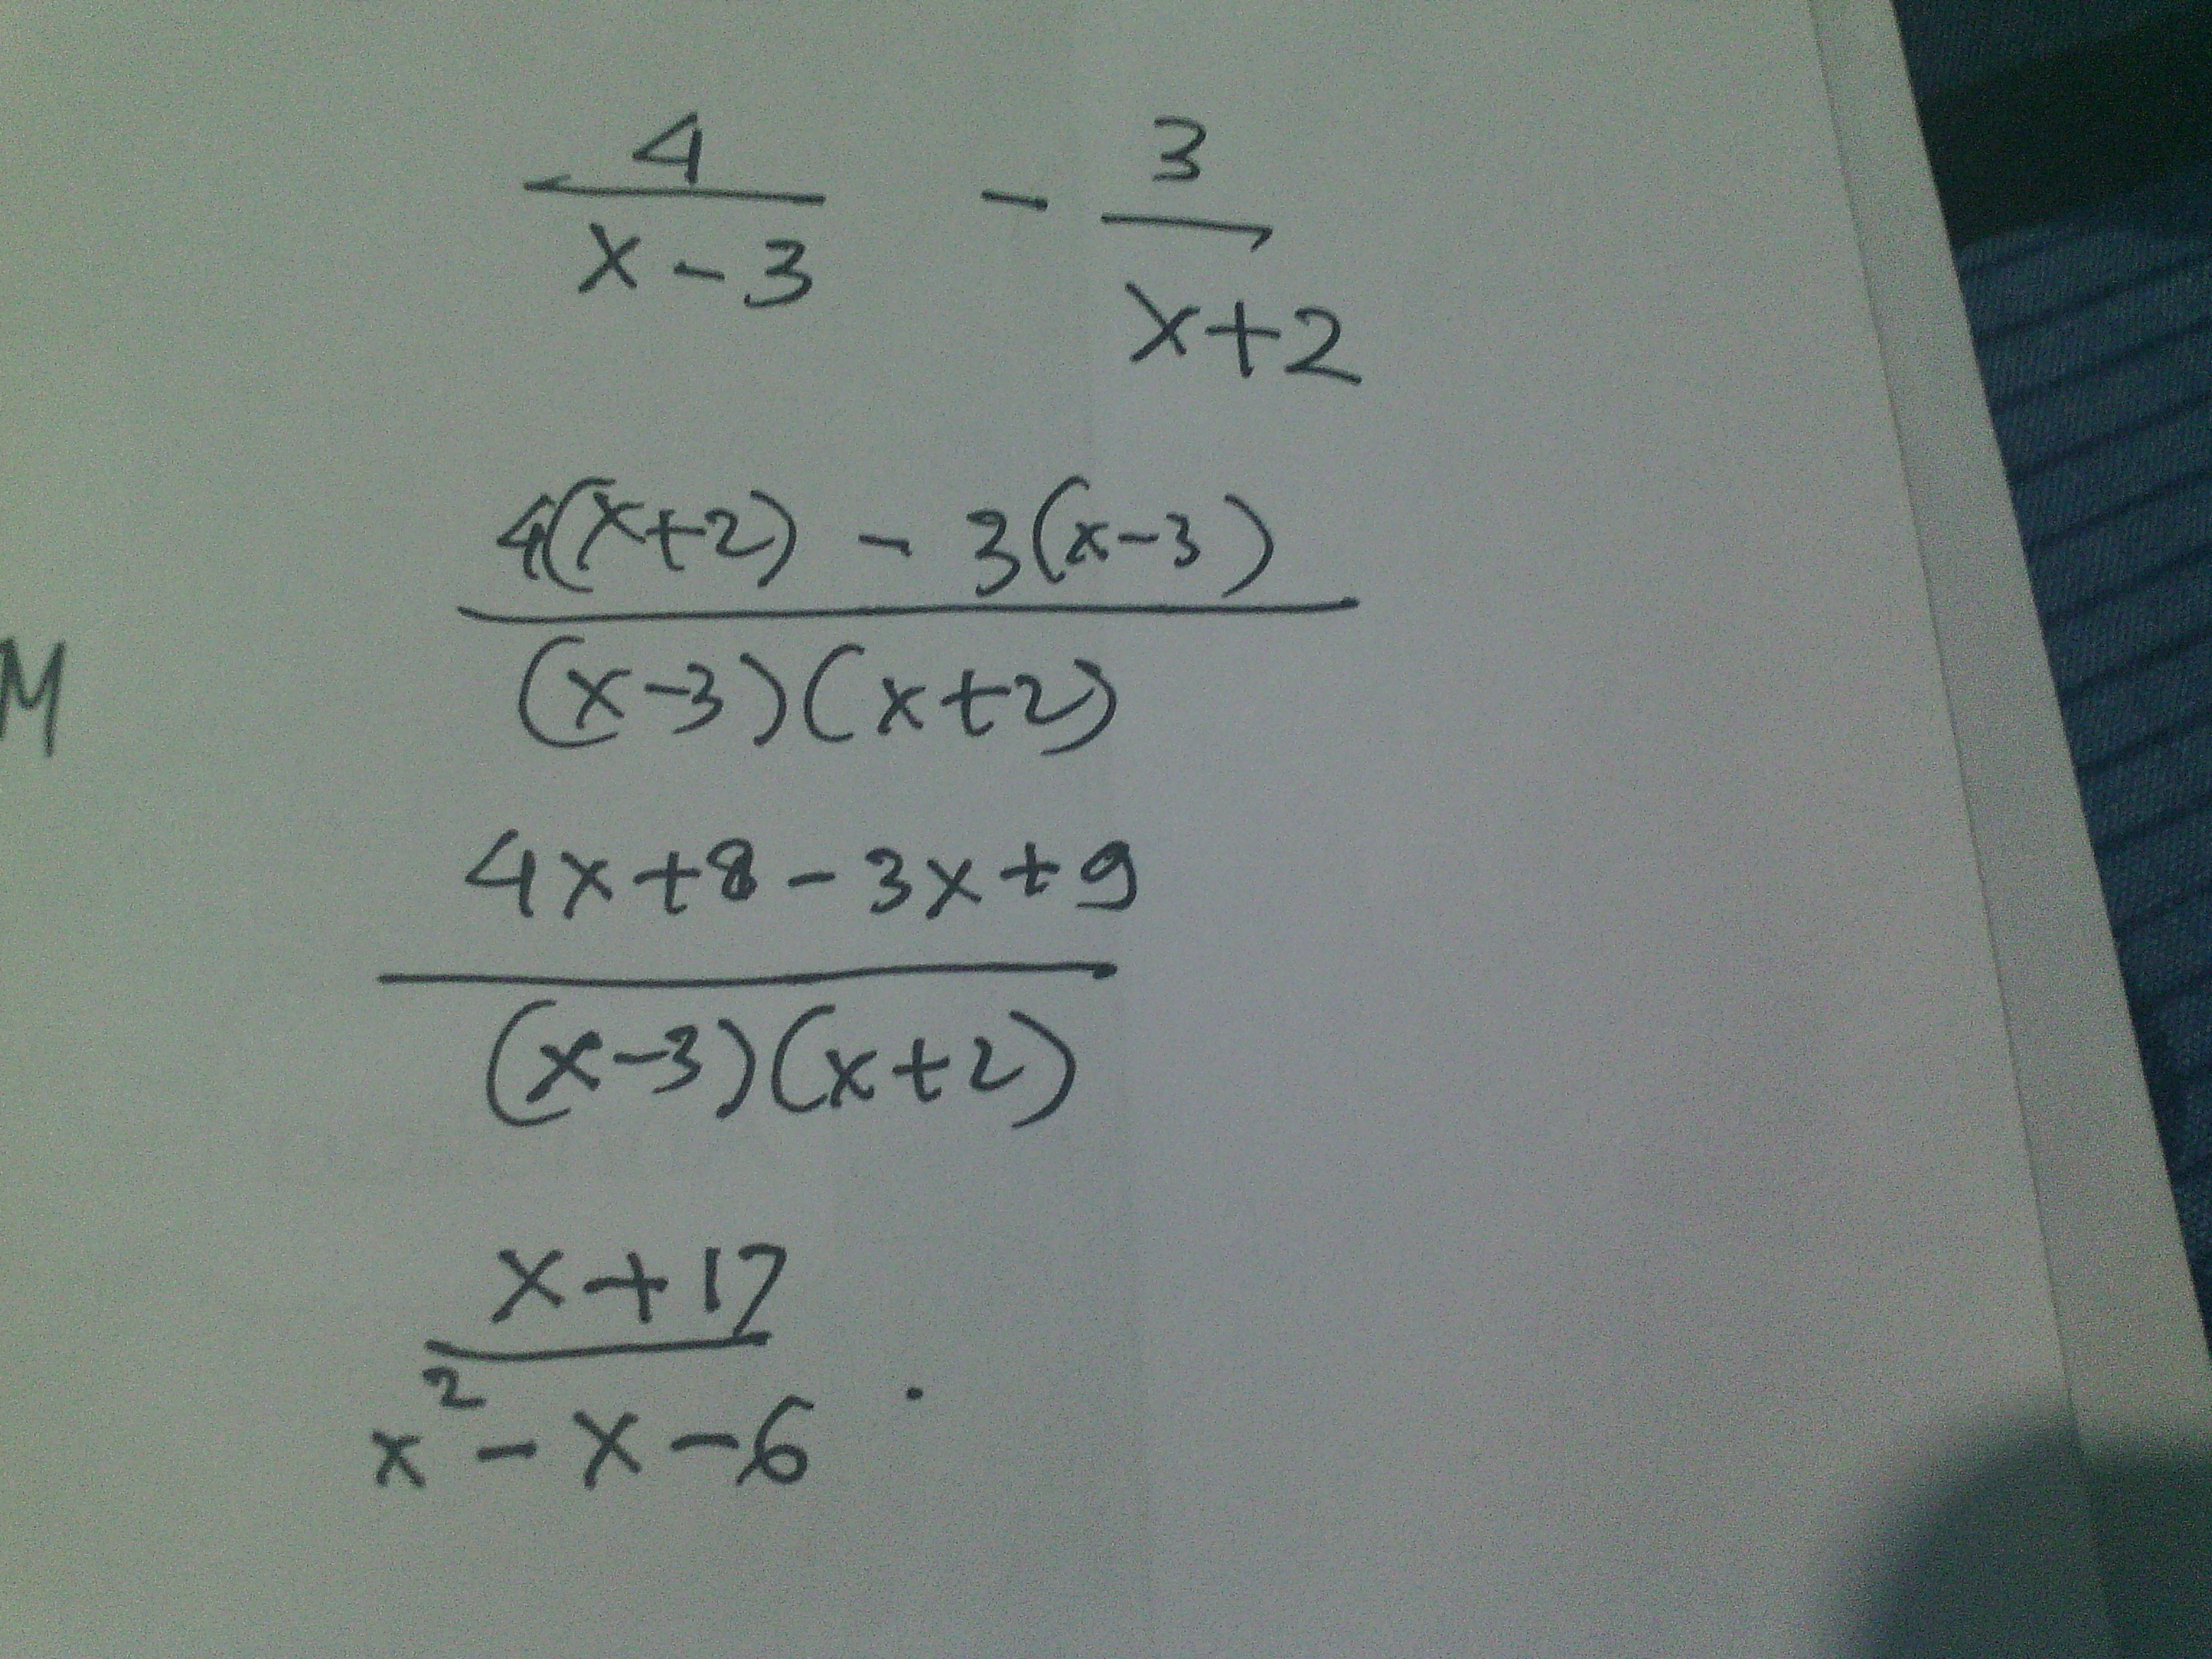 4/(x-3) - 3/(x+2)
M
(4(x+2) - 3(x-3))/((x-3)(x+2))
(4x+8-3x+9)/((x-3)(x+2))
(x+17)/(x²-x-6).